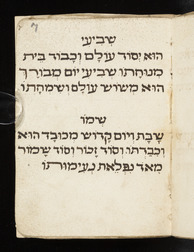 שביעי
הוא יסוד עולם וכבוד בית
מנוחתו שביעי יום מבורך
הוא משוש עולם ושמחתו
שימו
שבת ויום קדוש מכובד הוא
וכברתו וסוד זכור וסוד שמור
מאד נפלאת נעימותו